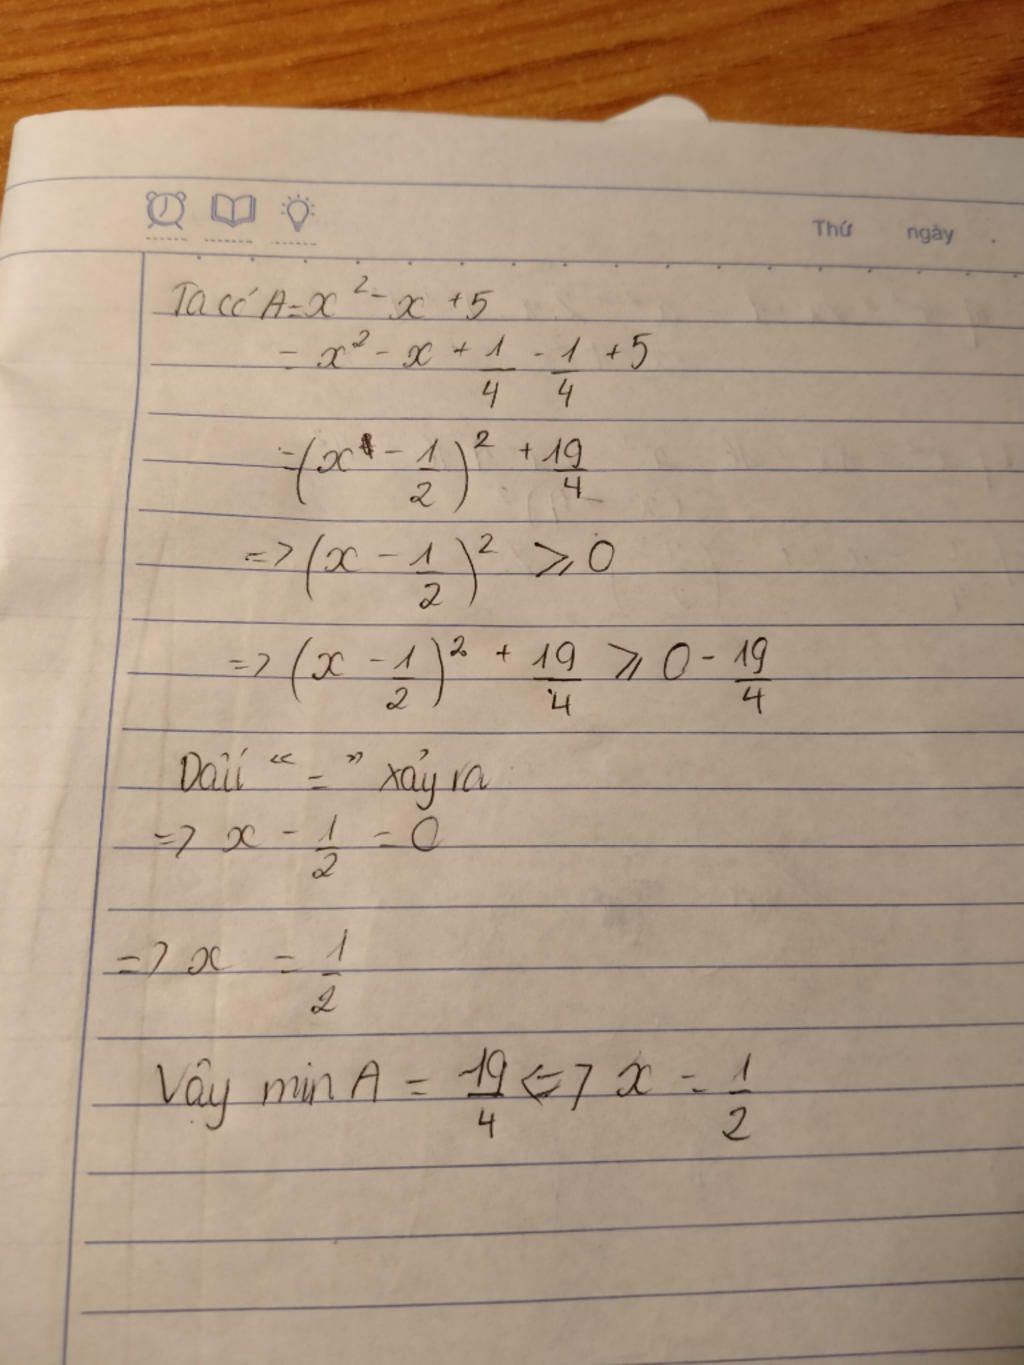 Thứ ngày
Ta có A = x² - x + 5
= x² - x + 1/4 - 1/4 + 5
= (x - 1/2)² + 19/4
=> (x - 1/2)² ⩾ 0
=> (x - 1/2)² + 19/4 ⩾ 0 - 19/4
Dấu “ = ” xảy ra
=> x - 1/2 = 0
=> x = 1/2
Vậy min A = 19/4 <=> x = 1/2